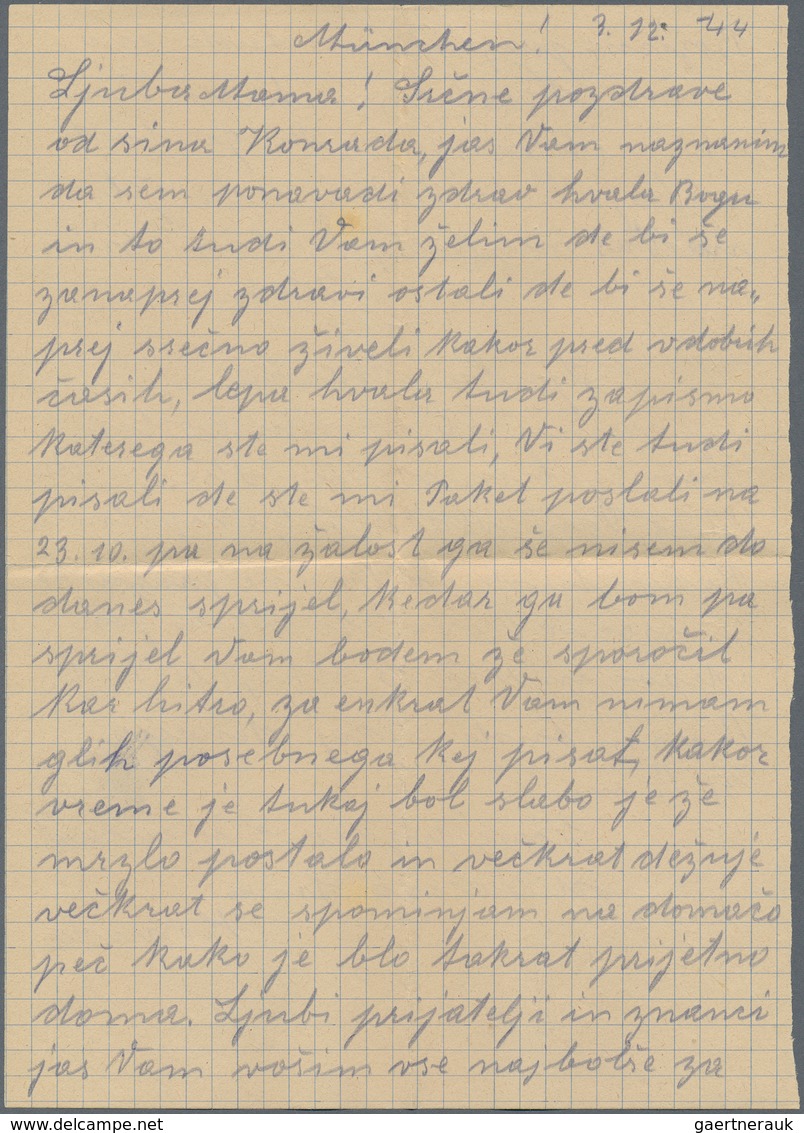 München! 3. 12. 44
Ljuba Mama! Srčne pozdrave
od sina Konrada, jas Vam naznanim
da sem ponavadi zdrav hvala Bogu
in to tudi Vam želim de bi še
zanaprej zdravi ostali de bi še na„
prej ssečno živeli kakor pred v dobrih
časih, lepa hvala tudi za pismo
katerega ste mi pisali, Vi ste tudi
pisali de ste mi Paket poslali na
23. 10. pa na žalost ga še nisem do
danes sprijel, kedar ga bom pa
sprijel Vam bodem že sporočil
kar hitro, za enkrat Vam nimam
glih posebnega kej pisat, kakor
vreme je tukaj bol slabo je že
mrzlo postalo in večkrat dežuje
večkrat se spominjam na domačo
peč kako je blo takrat prijetno
doma. Ljubi prijatelji in znanci
jas Vam vošim vse najbolše za
gaertnerauk